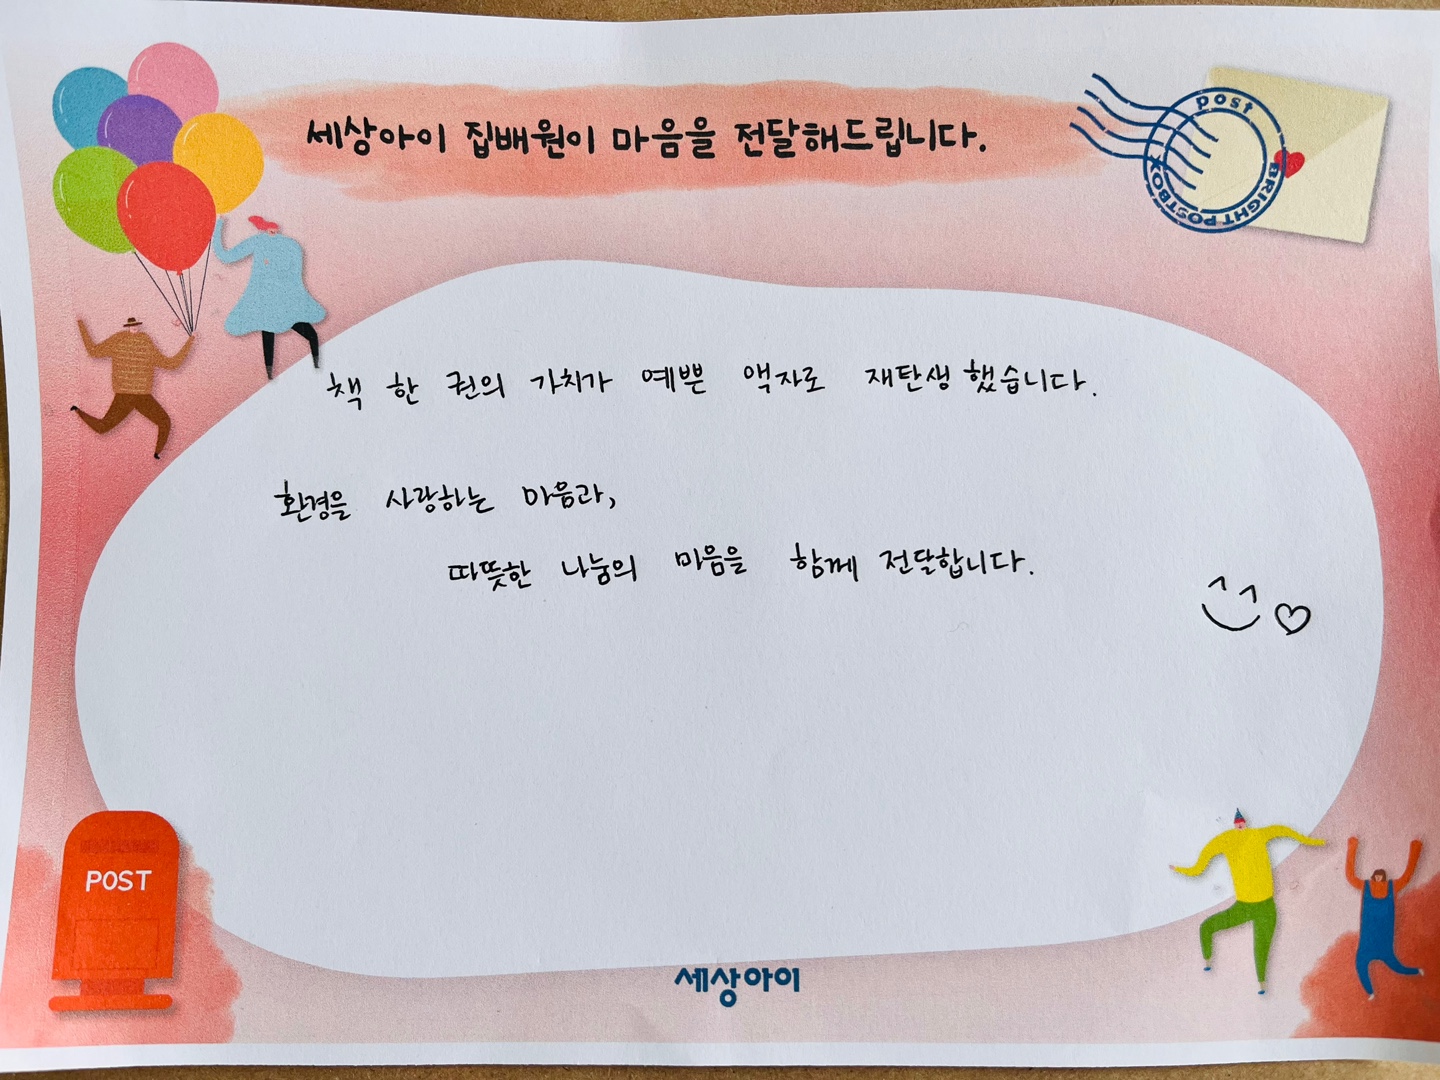 세상아이 집배원이 마음을 전달해드립니다.
post
BRIGHT POSTBOX
책 한 권의 가치가 예쁜 액자로 재탄생했습니다.
환경을 사랑하는 마음과,
따뜻한 나눔의 마음을 함께 전달합니다.
POST
세상아이